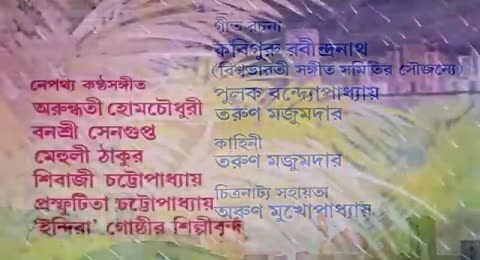 নেপথ্য কণ্ঠসঙ্গীত
অরুন্ধতী হোমচৌধুরী
বনশ্রী সেনগুপ্ত
মেহুলী ঠাকুর
শিবাজী চট্টোপাধ্যায়
প্রস্ফুটিতা চট্টোপাধ্যায়
'ইন্দিরা' গোষ্ঠীর শিল্পীবৃন্দ
গীত রচনা
কবিগুরু রবীন্দ্রনাথ
(বিশ্বভারতী সঙ্গীত সমিতির সৌজন্যে)
পুলক বন্দ্যোপাধ্যায়
তরুণ মজুমদার
কাহিনী
তরুণ মজুমদার
চিত্রনাট্য সহায়তা
অরুণ মুখোপাধ্যায়